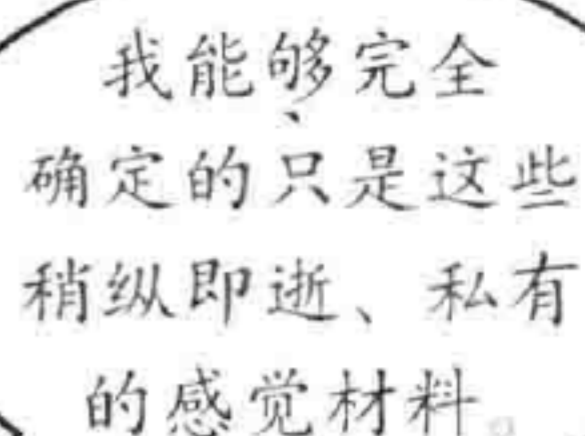 我能够完全
确定的只是这些
稍纵即逝、私有
的感觉材料。